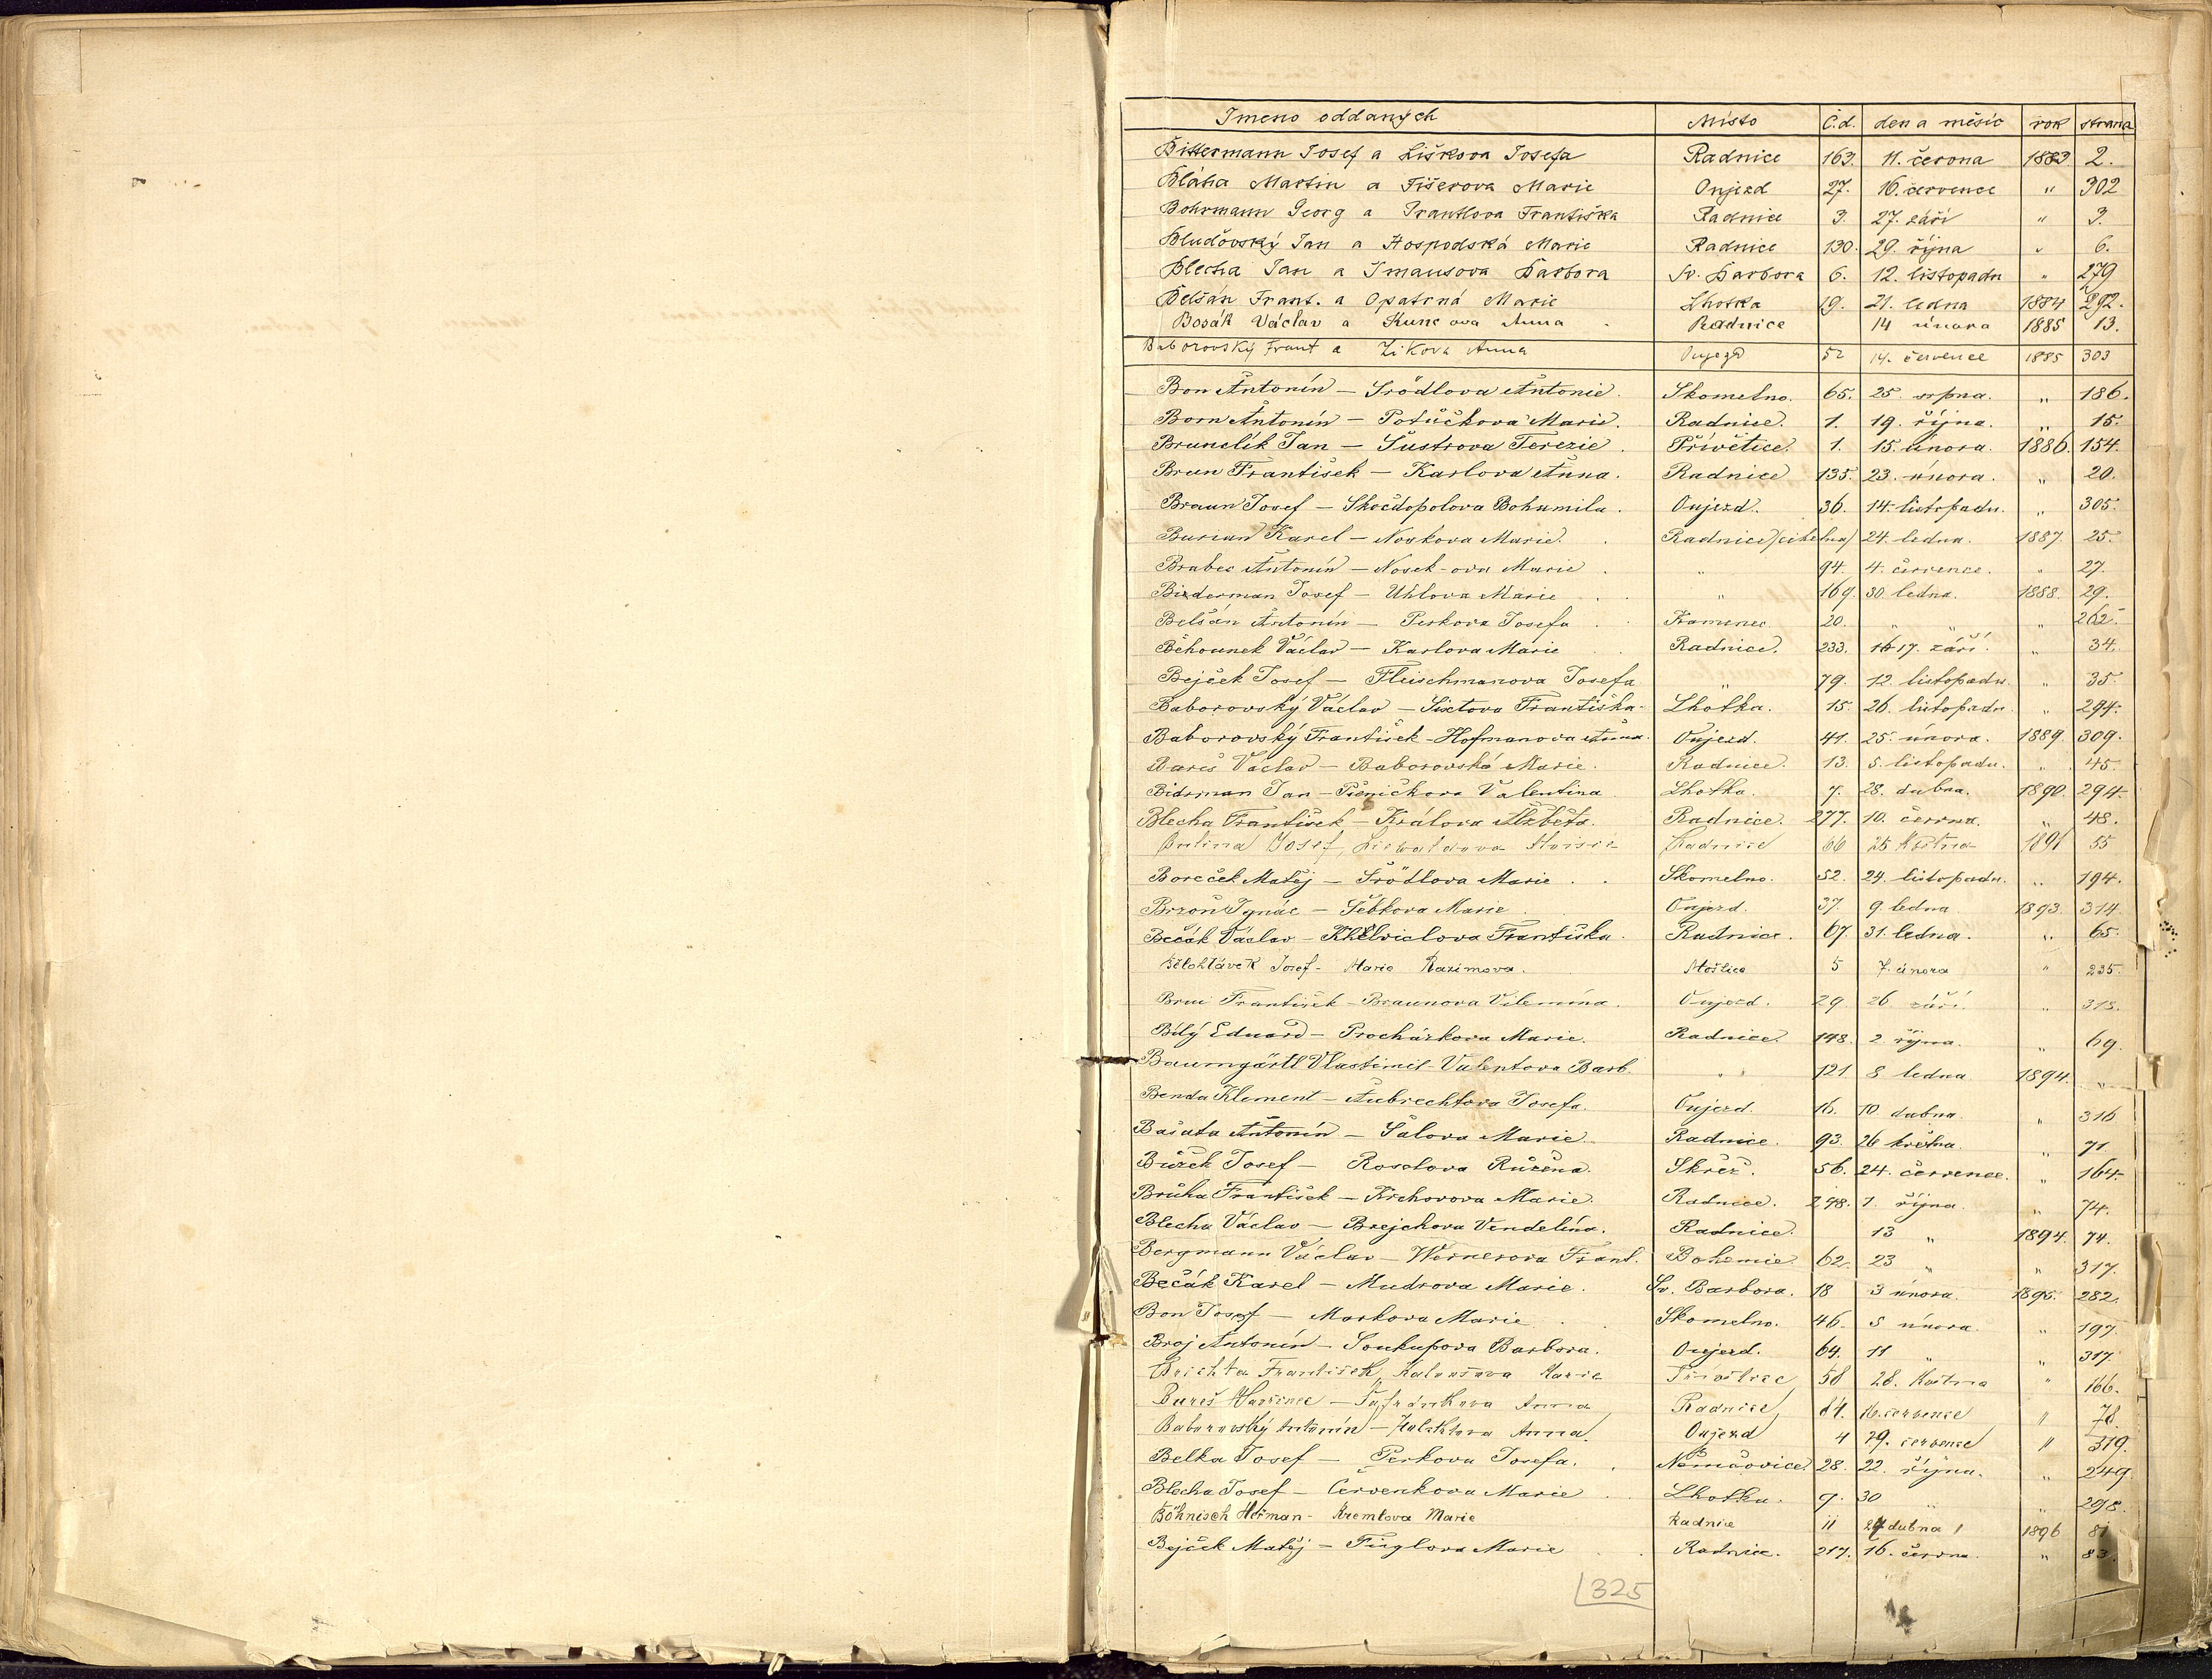 Jmeno oddaných Místo Č.d. den a měsíc rok strana
Bittermann Josef a Liškova Josefa Radnice 163. 11. června 1883 2.
Bláha Martin a Fišerova Marie Oujezd 27. 16. července " 302
Bohrmann Georg a Františka Radnice 3. 27. září " 3.
Bluďovský Jan a Hospodská Marie Radnice 130. 29. října " 6.
Blecha Jan a Barbora Sv. Barbora 6. 12. listopadu " 279
Belšán Frant. a Opatrná Marie Lhotka 9. 21. ledna 1884 292.
Bosák Václav a Kuncova Anna Radnice 14 února 1885 13.
Baborovský Frant a Zikova Anna Oujezd 52 14. července 1885 303
Bon Antonín – Srödlova Antonie. Skomelno. 65. 25. srpna. " 186.
Born Antonín – Potůčkova Marie. Radnice. 1. 19. října. " 15.
Brunclík Jan – Šustrova Terezie. Přívětice. 1. 15. února. 1886. 154.
Brun František – Karlova Anna. Radnice 135. 23. února. " 20.
Braun Josef – Skočdopolova Bohumila. Oujezd. 36. 14. listopadu. " 305.
Burian Karel – Noskova Marie. Radnice (cihelna) 24. ledna. 1887. 25.
Brabec Antonín – Nosek-ova Marie " 94. 4. července. " 27.
Biederman Josef – Uhlova Marie " 169. 30. ledna. 1888. 29.
Belšán Antonín – Perkova Josefa Kamenec 20. " " " 262.
Běhounek Václav – Karlova Marie Radnice. 233. 17. září. " 34.
Bejček Josef – Fleischmanova Josefa " 79. 12. listopadu. " 35.
Baborovský Václav – Sixtova Františka. Lhotka. 15. 26. listopadu. " 294.
Baborovský František – Hofmanova Anna. Oujezd. 41. 25. února. 1889. 309.
Bareš Václav – Baborovská Marie. Radnice. 13. 5. listopadu. " 45.
Bidrman Jan – Pšeničkova Valentina Lhotka. 7. 28. dubna. 1890. 294.
Blecha František – Králova Alžběta. Radnice 277. 10. června. " 48.
Josef, Marie Radnice 66 25 května 1891 55
Boreček Matěj – Srödlova Marie Skomelno. 52. 24. listopadu. " 194.
Brzoň Ignác – Šebkova Marie Oujezd. 37. 9. ledna 1893. 314
Bečák Václav – Františka. Radnice. 67. 31. ledna. " 65.
Bělohlávek Josef – Marie Razimova. Moštice 5 7. února " 235.
František – Braunova Vilemína. Oujezd. 29. 26. září. " 315.
Bílý Eduard – Procházkova Marie. Radnice. 148. 2. října. " 69.
Baumgärtl Vlastimil – Valentova Barb. " 121 8. ledna 1894. "
Benda Klement – Aubrechtova Josefa. Oujezd. 16. 10. dubna. " 316
Bašata Antonín – Šalova Marie. Radnice. 93. 26 května. " 71
Bůžek Josef – Rosolova Růžena. Skřež. 56. 24. července. " 164.
Brůha František – Krchovova Marie. Radnice. 248. 1. října. " 74.
Blecha Václav – Brejchova Vendelína. Radnice. 13 " 1894. 74.
Bergmann Václav – Wernerova Frant. Bohemie 62. 23 " " 317.
Bečák Karel – Mudrova Marie. Sv. Barbora. 18 3 února. 1895. 282.
Bon Josef – Markova Marie Skomelno. 46. 5 února. " 197.
Broj Antonín – Soukupova Barbora. Oujezd. 64. 11 " " 317.
Brichta František, Marie 58 28. května " 166.
Bureš – Šafránkova Anna Radnice 84. 16. července " 78.
Baborovský Antonín – Anna. Oujezd 4 29. července " 319.
Belka Josef – Perkova Josefa. Němčovice. 28. 22. října. " 249
Blecha Josef – Červenkova Marie Lhotka. 9. 30 " " 298.
Böhnisch Heřman – Kremlova Marie Radnice 11 27 dubna 1896 81
Bejček Matěj – Fuglova Marie Radnice. 217. 16. června. " 83.
325